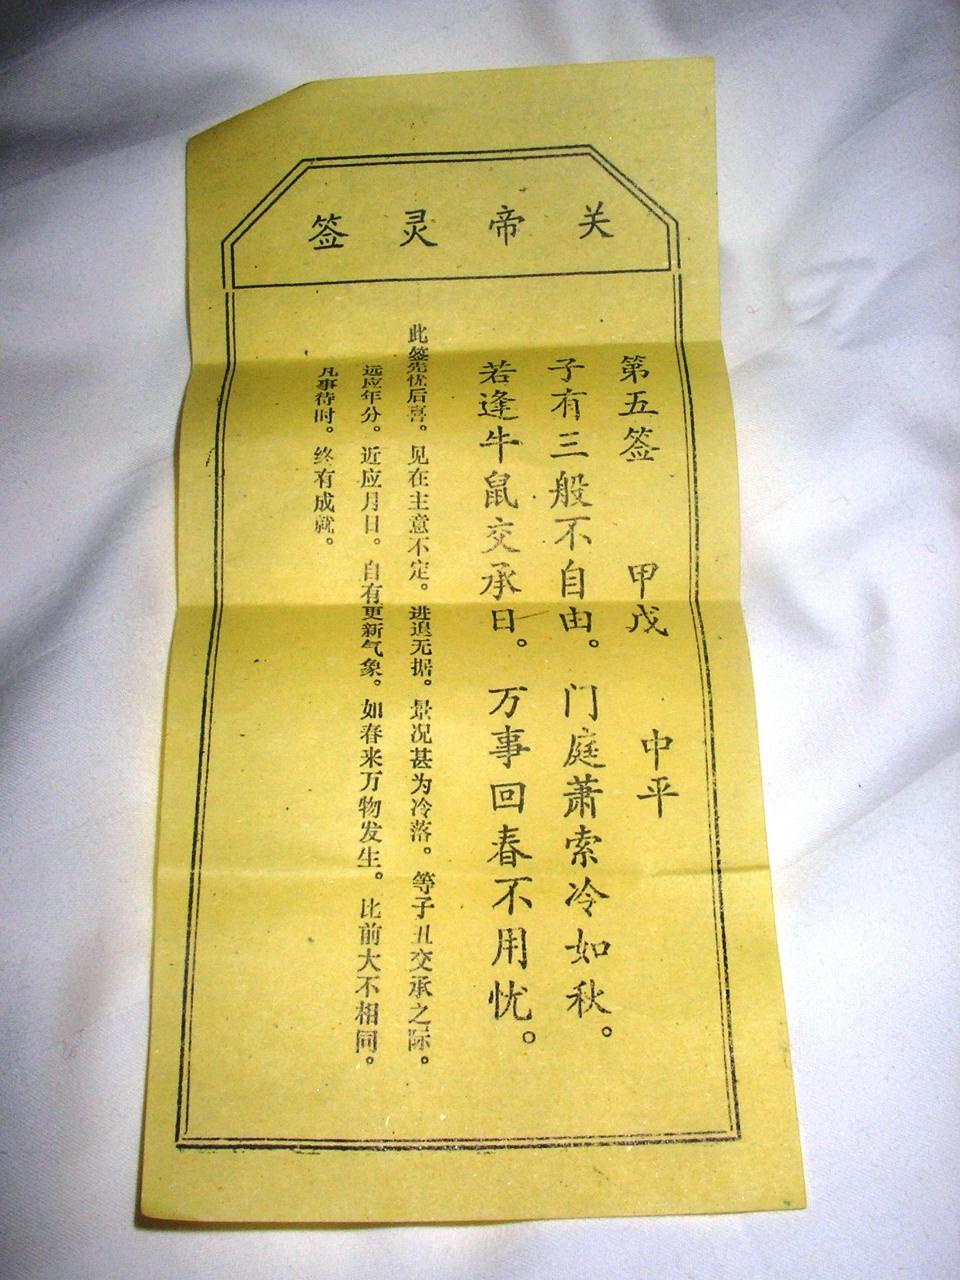 关帝灵签
第五签 甲戊 中平
子有三般不自由。门庭萧索冷如秋。
若逢牛鼠交承日。万事回春不用忧。
此签先忧后喜。见在主意不定。进退无据。景况甚为冷落。等子丑交承之际。
远应年分。近应月日。自有更新气象。如春来万物发生。比前大不相同。
凡事待时。终有成就。